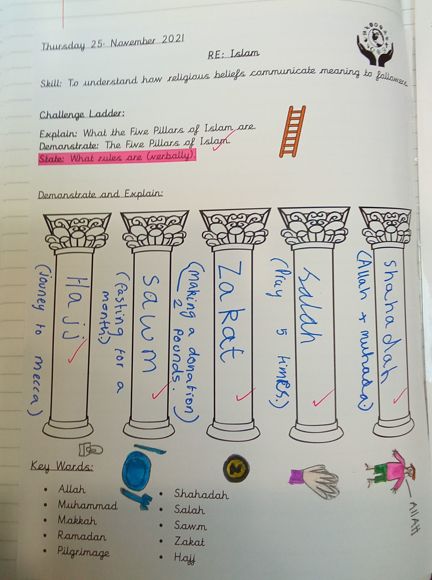 Thursday 25 November 2021
RE: Islam
Skill: To understand how religious beliefs communicate meaning to followers
Challenge Ladder:
Explain: What the Five Pillars of Islam are
Demonstrate: The Five Pillars of Islam
State: What rules are (verbally)
Demonstrate and Explain:
Hajj
(jouney to mecca)
Sawm
(fasting for a
month)
Zakat
(making a donation)
2 pounds.
Salah
(Pray 5 times.)
Shahadah
(Allah + muhada)
ALLAH
Key Words:
• Allah
• Muhammad
• Makkah
• Ramadan
• Pilgrimage
• Shahadah
• Salah
• Sawm
• Zakat
• Hajj